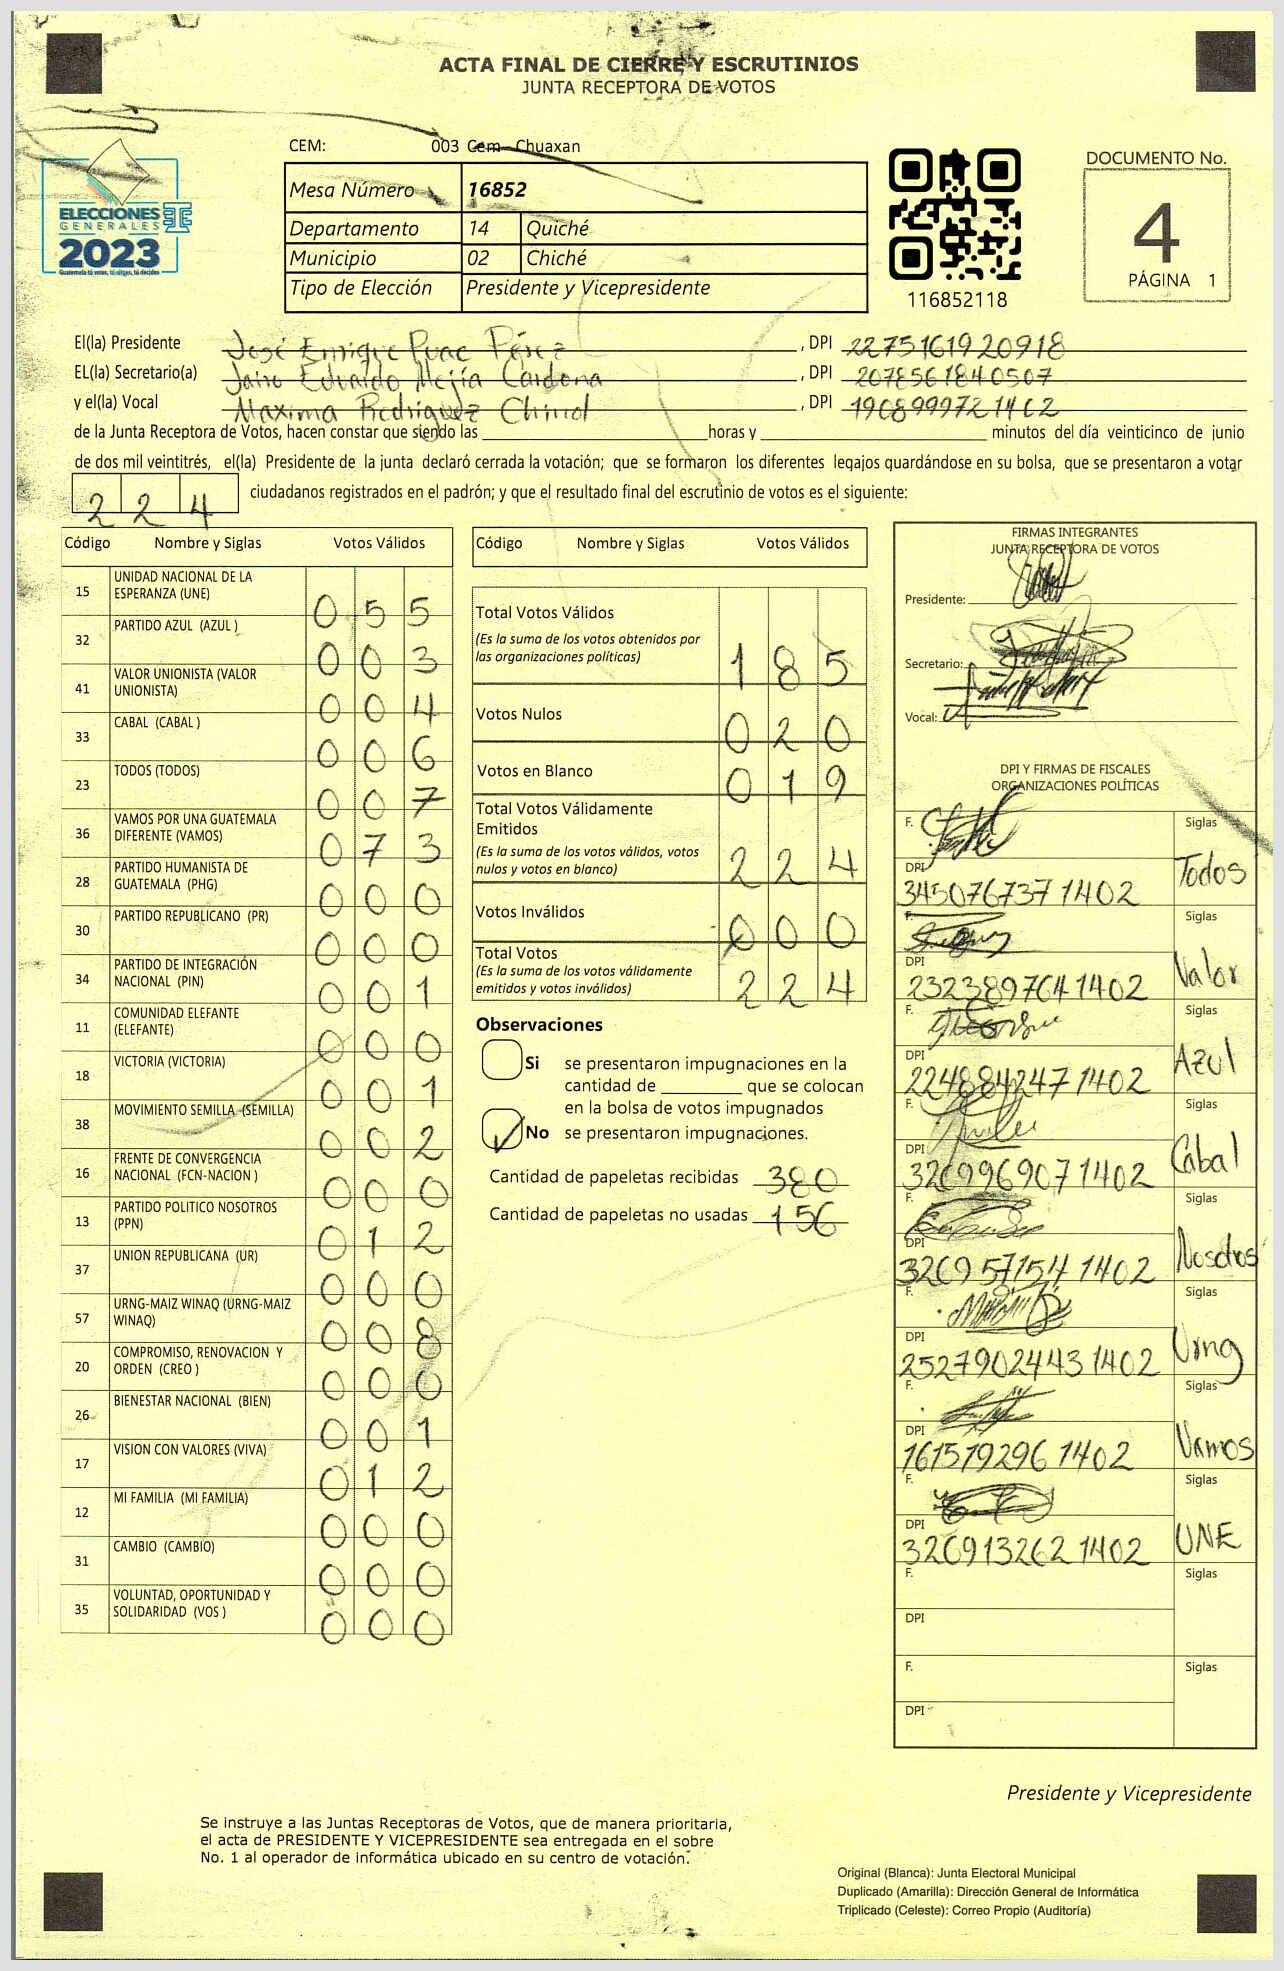 ACTA FINAL DE CIERRE Y ESCRUTINIOS
JUNTA RECEPTORA DE VOTOS
CEM: 003 Cem Chuaxan
Mesa Número 16852
Departamento 14 Quiché
Municipio 02 Chiché
Tipo de Elección Presidente y Vicepresidente
ELECCIONES
GENERALES
2023
Guatemala tú votas, tú eliges, tú decides
116852118
DOCUMENTO No.
4
PÁGINA 1
El(la) Presidente José Enrique Puac Pérez , DPI 2275161920918
EL(la) Secretario(a) Jairo Eduardo Mejía Cardona , DPI 2078561840507
y el(la) Vocal Maxima Rodriguez Chinol , DPI 1908999721402
de la Junta Receptora de Votos, hacen constar que siendo las horas y minutos del día veinticinco de junio
de dos mil veintitrés, el(la) Presidente de la junta declaró cerrada la votación; que se formaron los diferentes legajos guardándose en su bolsa, que se presentaron a votar
224 ciudadanos registrados en el padrón; y que el resultado final del escrutinio de votos es el siguiente:
Código Nombre y Siglas Votos Válidos
15 UNIDAD NACIONAL DE LA ESPERANZA (UNE) 055
32 PARTIDO AZUL (AZUL ) 003
41 VALOR UNIONISTA (VALOR UNIONISTA) 004
33 CABAL (CABAL ) 006
23 TODOS (TODOS) 007
36 VAMOS POR UNA GUATEMALA DIFERENTE (VAMOS) 073
28 PARTIDO HUMANISTA DE GUATEMALA (PHG) 000
30 PARTIDO REPUBLICANO (PR) 000
34 PARTIDO DE INTEGRACIÓN NACIONAL (PIN) 001
11 COMUNIDAD ELEFANTE (ELEFANTE) 000
18 VICTORIA (VICTORIA) 001
38 MOVIMIENTO SEMILLA (SEMILLA) 002
16 FRENTE DE CONVERGENCIA NACIONAL (FCN-NACION ) 000
13 PARTIDO POLITICO NOSOTROS (PPN) 012
37 UNION REPUBLICANA (UR) 000
57 URNG-MAIZ WINAQ (URNG-MAIZ WINAQ) 008
20 COMPROMISO, RENOVACION Y ORDEN (CREO ) 000
26 BIENESTAR NACIONAL (BIEN) 001
17 VISION CON VALORES (VIVA) 012
12 MI FAMILIA (MI FAMILIA) 000
31 CAMBIO (CAMBIO) 000
35 VOLUNTAD, OPORTUNIDAD Y SOLIDARIDAD (VOS ) 000
Código Nombre y Siglas Votos Válidos
Total Votos Válidos 185
(Es la suma de los votos obtenidos por
las organizaciones políticas)
Votos Nulos 020
Votos en Blanco 019
Total Votos Válidamente
Emitidos 224
(Es la suma de los votos válidos, votos
nulos y votos en blanco)
Votos Inválidos 000
Total Votos 224
(Es la suma de los votos válidamente
emitidos y votos inválidos)
Observaciones
Si se presentaron impugnaciones en la
cantidad de que se colocan
en la bolsa de votos impugnados
No se presentaron impugnaciones.
Cantidad de papeletas recibidas 380
Cantidad de papeletas no usadas 156
FIRMAS INTEGRANTES
JUNTA RECEPTORA DE VOTOS
Presidente:
Secretario:
Vocal:
DPI Y FIRMAS DE FISCALES
ORGANIZACIONES POLÍTICAS
F. Siglas
DPI Todos
345076737 1402
F. Siglas
DPI Valor
2323897641402
F. Siglas
DPI Azul
2248842471402
F. Siglas
DPI Cabal
3269969071402
F. Siglas
DPI Nosotros
3269571541402
F. Siglas
DPI Urng
2527902443 1402
F. Siglas
DPI Vamos
161519296 1402
F. Siglas
DPI UNE
3269132621402
F. Siglas
DPI
F. Siglas
DPI
Presidente y Vicepresidente
Se instruye a las Juntas Receptoras de Votos, que de manera prioritaria,
el acta de PRESIDENTE Y VICEPRESIDENTE sea entregada en el sobre
No. 1 al operador de informática ubicado en su centro de votación.
Original (Blanca): Junta Electoral Municipal
Duplicado (Amarilla): Dirección General de Informática
Triplicado (Celeste): Correo Propio (Auditoría)